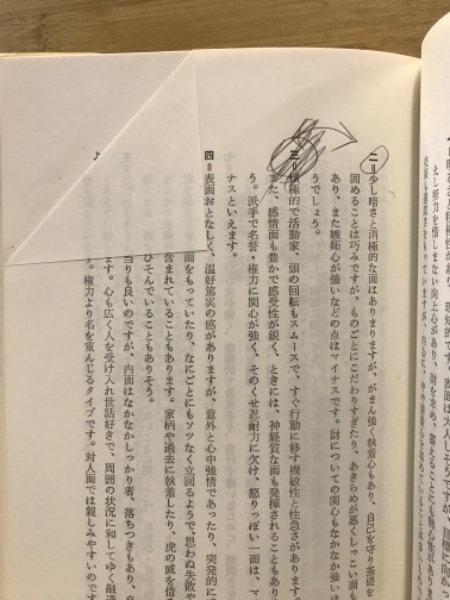 えし努力を惜しまない向上心があり、財を求め、蓄えることにも熱心
二=少し暗さと消極的な面はありますが、がまん強く執着心もあり、自己を守り基礎を
固めることは巧みですが、ものごとにこだわりすぎたり、あきらめが悪くしっこい面も
あり、また嫉妬心が強いなどの点はマイナスです。財についての関心もなかなか強いほ
うでしょう。
三=積極的で活動家、頭の回転もスムースで、すぐ行動に移す機敏性と性急さがあります。
また、感情面も豊かで感受性が鋭く、ときには、神経質な面も発揮されることもあり
う。派手で名誉・権力に関心が強く、そのくせ忍耐力に欠け、怒りっぽい一面は、マ
ナスといえます。
四=表面おとなしく、温好篤実の感がありますが、意外と心中強情であったり、突発的に
面をもっていたり、なにごとにもソツなく立回るようで思わぬ失敗や
含まれていることもあります。家柄や過去に執着したり、虎の威を借る
ひそんでいることもありそう。
当りも良いのですが、内面はなかなかしっかり者、落ちつきもあり、
ます。心も広く人を受け入れ世話好きで、周囲の状況に和してゆく融通
。権力より名を重んじるタイプです。対人面では親しみやすいのです